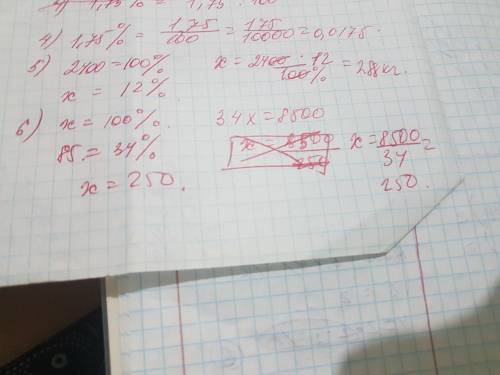 1,75% = 1,75 : 100
4) 1,75% = 1,75/100 = 175/10000 = 0,0175.
5) 2400 = 100% x = 2400 · 12/100% = 288кг.
x = 12%
6) x = 100%. 34x = 8500
85 = 34% x = 8500/34 =
x = 250. 250.